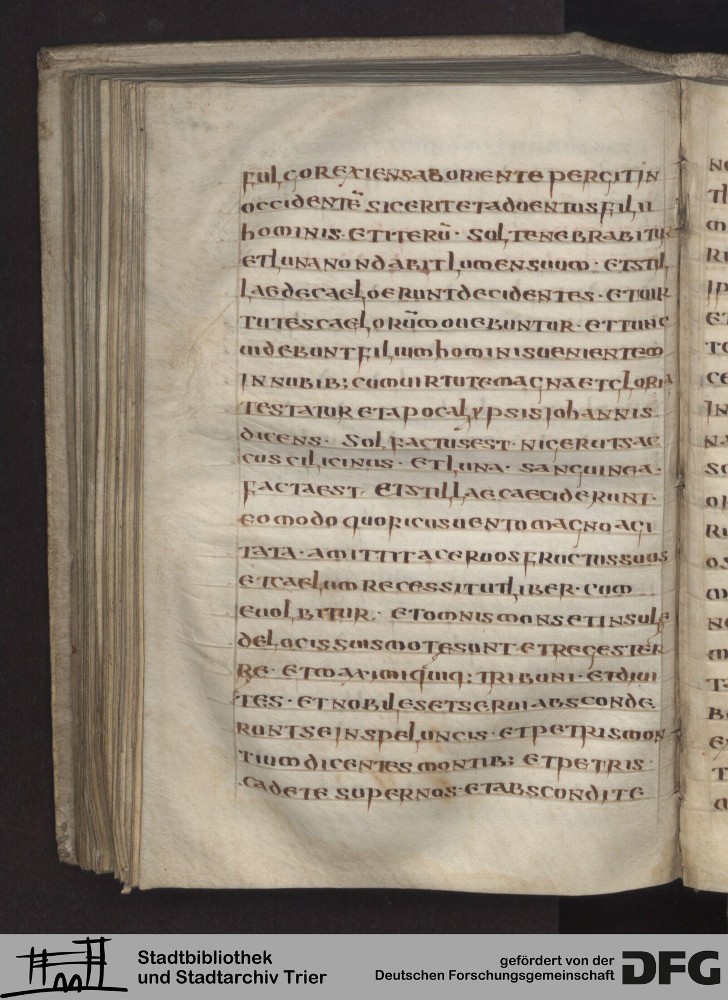 fulgor exiens ab oriente pergit in
occidentē sic erit et aduentus filii
hominis. et iterū. sol tenebrabitur
et luna non dabit lumen suum. et stil
lae de caelo erunt decidentes. et uir
tutes caelorūm ouebuntur. et tunc
uidebunt filium hominis uenientem
in nubib; cum uirtute magna et gloria
testatur et apocalypsis iohannis
dicens. sol factus est. niger ut sac
cus cilicinus. et luna. sanguinea.
facta est. et stillae caeciderunt.
eo modo quo ficus uento magno agi
tata. amittit aceruos fructus suos
et caelum recessit ut liber. cum
euolbitur. et omnis mons et insule
de locis suis mote sunt. et reges ter
re. et maximi quiq; tribuni. et diui
tes. et nobiles et serui absconde
runt se in speluncis. et petris mon
tium dicentes montib; et petris.
cadete super nos. et abscondite
Stadtbibliothek
und Stadtarchiv Trier
gefördert von der
Deutschen Forschungsgemeinschaft
DFG